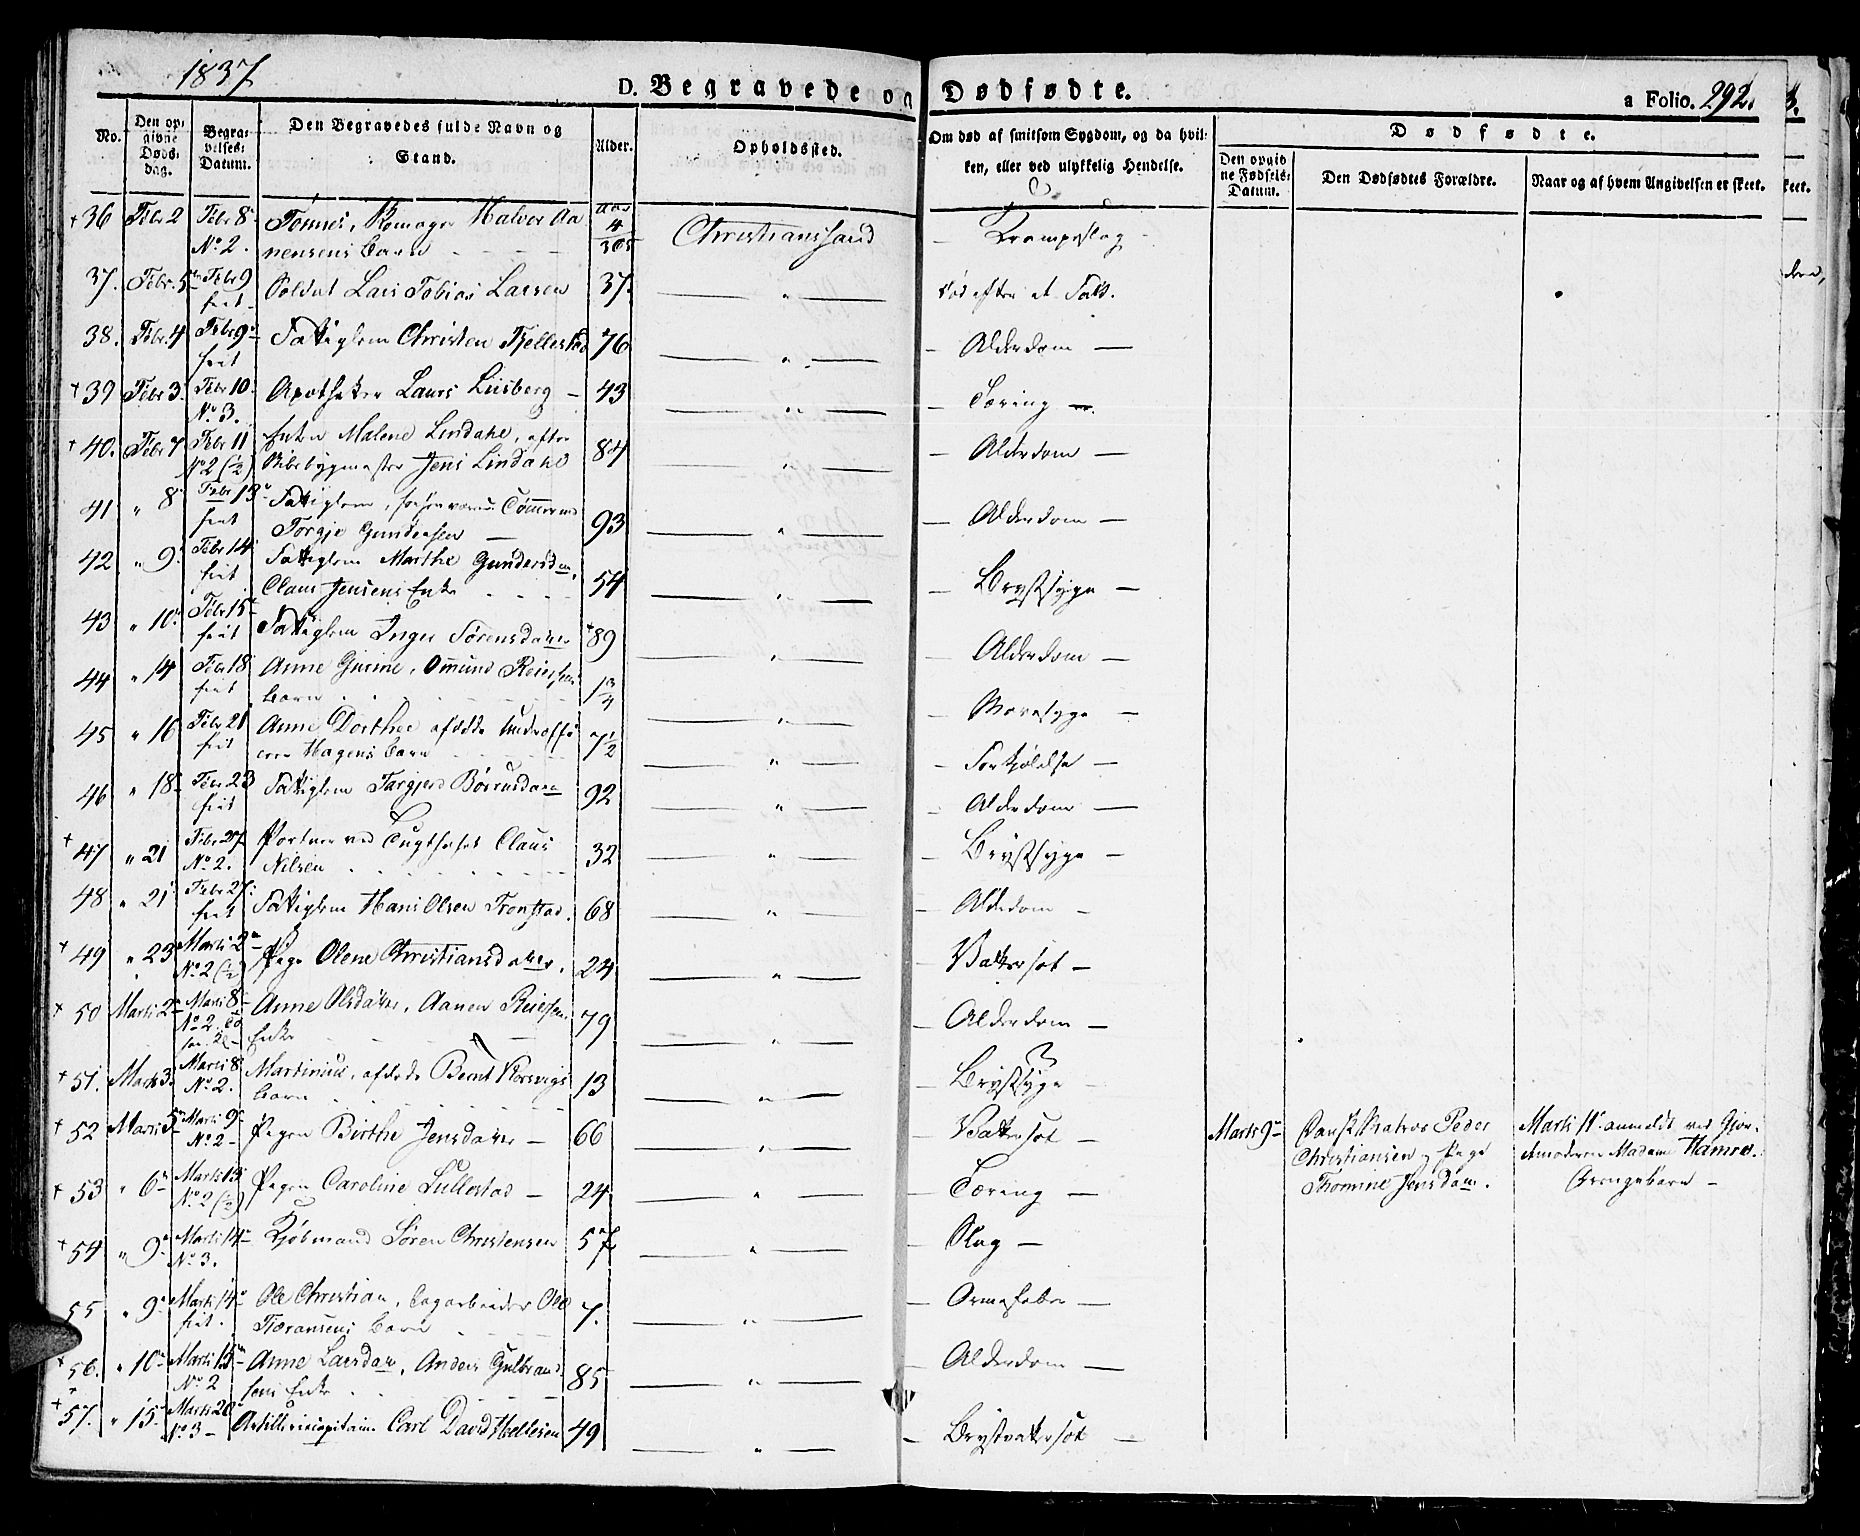 1837
D. Begravede og Dødfødte.
a Folio. 292.
No.
Den op-
givne
Døds-
dag.
Begra-
velses-
Datum.
Den Begravedes fulde Navn og
Stand.
Alder.
Opholdssted.
Om død af smitsom Sygdom, og da hvil-
ken, eller ved ulykkelig Hendelse.
Dødfødte.
Den opgiv
ne Fødsels-
Datum.
Den Dødfødtes Forældre.
Naar og af hvem Angivelsen er skeet.
+ 36 Febr 2 Febr 8 Tønnes, Halvor Aa aar 4/365 Christianssand – Krampeslag –
No 2. nensens Barn
37. Febr. 5 Febr 9 Soldat Lars Tobias Larsen 37. — " — død efter et Fald.
frit
38. Febr. 4 Febr 9 Fattiglem Christen Fjellestad 76 — " — – Alderdom —
frit
+ 39 Febr 3 Febr 10 Apotheker Laurs Liisberg – 43 — " — – Tæring –
No 3.
+ 40. Febr 7 Febr 11 Enken Malene Lindahl, efter 84 — " — – Alderdom –
No 2 (½) Jens Lindahl
41 " 8 Febr 13 Fattiglem, 93 — " — – Alderdom –
frit Torgje Gundersen –
42 " 9 Febr 14 Fattiglem Marthe Gundersdtr, 54 — " — – Brystsyge –
frit Claus Jensens Enke
43 " 10 Febr 15 Fattiglem Inger Sørensdatter 89 — " — – Alderdom –
frit
44 " 14 Febr 18 Anne Gurine, Omund Reiersens 1¾ — " — – Mavesyge –
frit Barn
45 " 16 Febr 21 Anne Dorthee afdøde Underoffi 7½ — " — – Forkjølelse –
frit cerer Hagens Barn
46 " 18 Febr 23 Fattiglem Targjerd 92 — " — – Alderdom —
frit
+ 47 " 21 Febr 27 Portner ved Tugthuset Claus 32 — " — – Brystsyge –
No 2. Nilsen
48 " 21 Febr 27 Fattiglem Hans Olsen Tronstad. 68 — " — – Alderdom –
frit
+ 49 " 23 Marts 2 Pige Olene Christiansdatter. 24 — " — – Vattersot –
No 2 (½)
+ 50 Marts 2 Marts 8 Anne Olsdatter, Aanen Reiersens 79 — " — – Alderdom –
No 2. Enke
+ 51. Marts 3 Marts 8 Martinius, afdøde Bernt Korsvigs 13 — " — – Brystsyge –
No 2. Barn
+ 52 Marts 5 Marts 9 Pigen Birthe Jensdatter – 66 — " — – Vattersot –
No 2 –
Marts 9 Dansk Matros Peder
Christiansen, Pige
Thomine Jensdatr.
Marts 11 anmeldt ved Gjor-
demoderen Madame Hamre.
Drengebarn –
+ 53 " 6 Marts 13 Pigen Caroline Lullestad – 24 — " — – Tæring –
No 2 (½)
+ 54 " 9 Marts 14 Kjøbmand Søren Christensen 57 — " — – Slag –
No 3.
55 " 9 Marts 14 Ole Christian, Ole 7. — " — – Ormefeber –
frit. Barn
+ 56. " 10 Marts 15 Anne Larsdatr, Anders Gulbrand 85 — " — – Alderdom —
No 2 sens Enke
+ 57. " 15 Marts 20 Artillericapitain Carl David Hellesen 49 — " — – Brystvattersot –
No 3 –